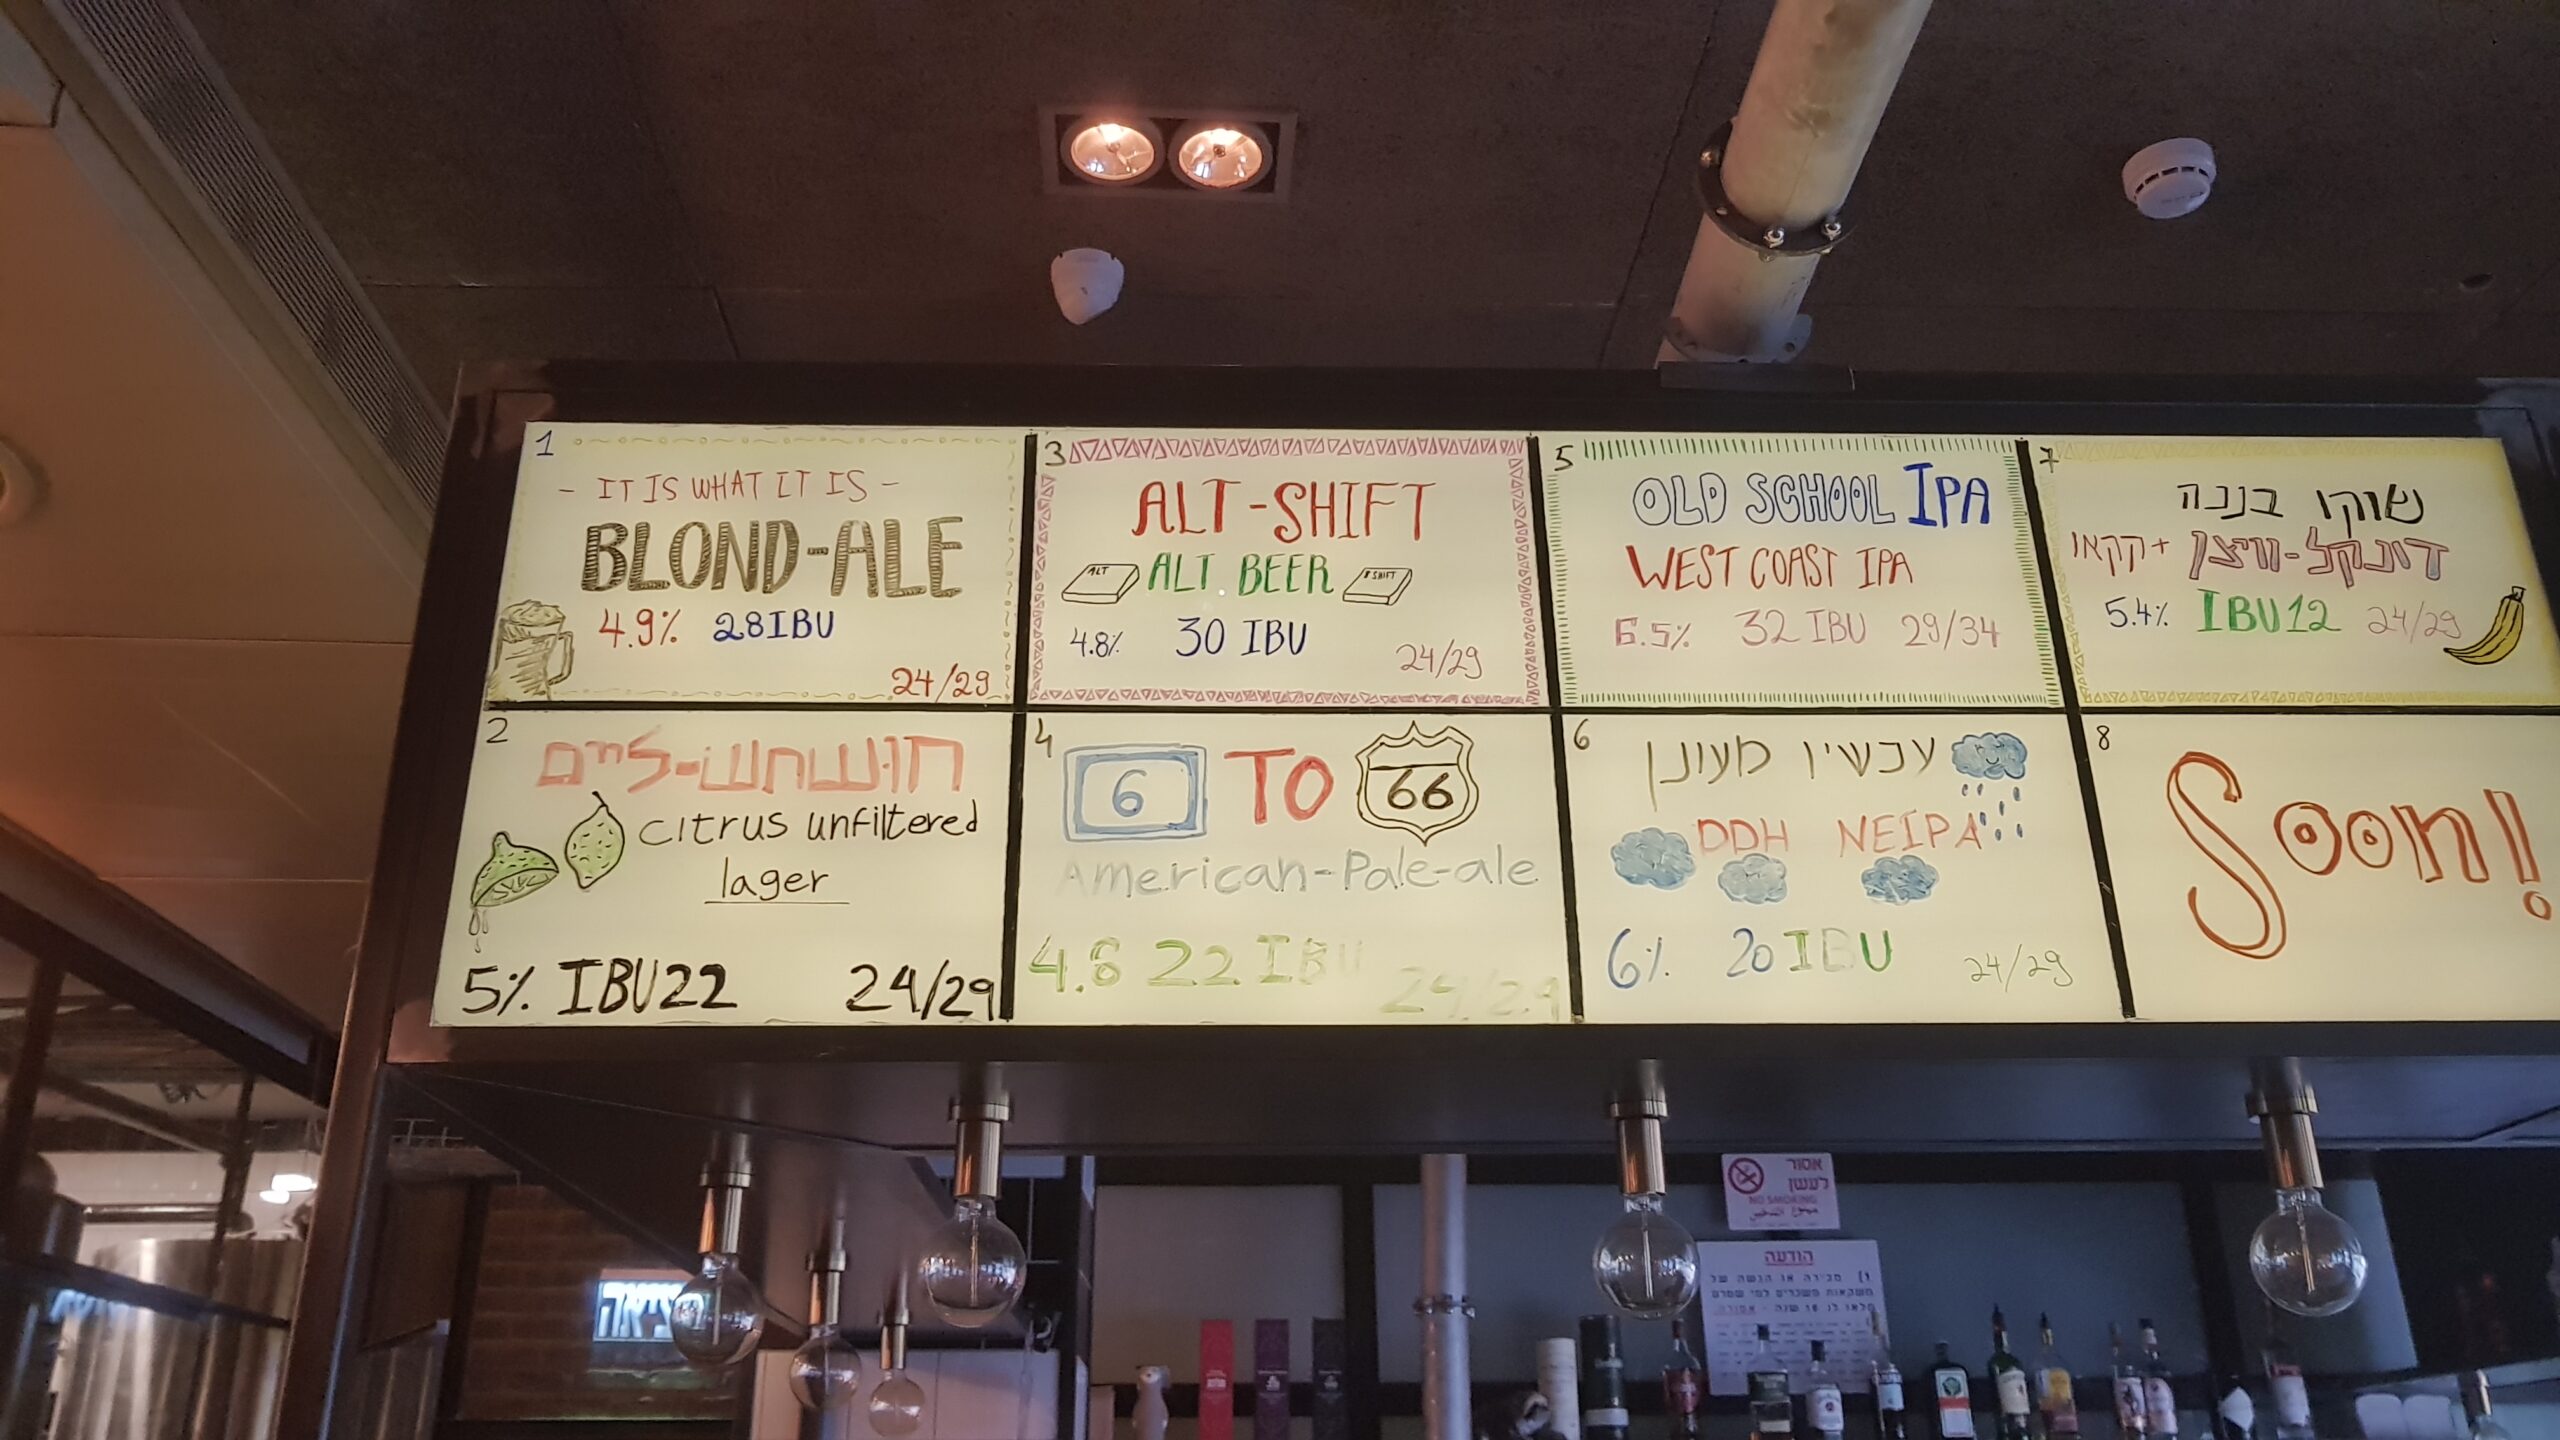 1
- IT IS WHAT IT IS -
BLOND-ALE
4.9% 28IBU
24/29
2
חושחש-ליים
citrus unfiltered
lager
5% IBU22 24/29
3
ALT-SHIFT
ALT
ALT. BEER
SHIFT
4.8% 30 IBU
24/29
4
6 TO 66
American-Pale-ale
4.8 22 IBU
24/29
5
OLD SCHOOL IPA
WEST COAST IPA
6.5% 32 IBU 29/34
6
עכשיו מעונן
DDH NEIPA
6% 20 IBU
24/29
7
שוקו בננה
דונקל-וויצן + קקאו
5.4% IBU12 24/29
8
Soon!
אסור
לעשן
NO SMOKING
הודעה
1) מכירה או הגשה של
משקאות משכרים למי שטרם
מלאו לו 18 שנה - אסורה